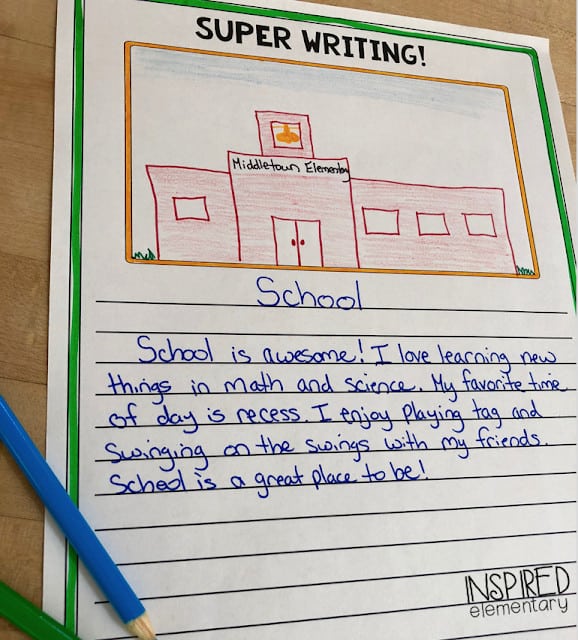 SUPER WRITING!
Middletown Elementary
School
School is awesome! I love learning new
things in math and science. My favorite time
of day is recess. I enjoy playing tag and
swinging on the swings with my friends.
School is a great place to be!
INSPIRED
elementary